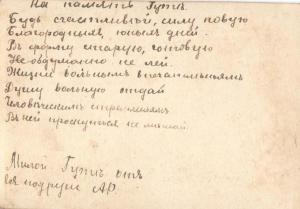 На память Гутѣ.
Будь счастливой, силу новую
Благородныхъ, юныхъ дней
Въ форму старую, готовую
Необдуманно не лей.
Жизни вольнымъ впечатлѣньямъ
Душу вольную отдай
Человѣческимъ стремленьямъ
Въ ней проснуться не мѣшай.
Милой Гутѣ отъ
ея подруги АР.